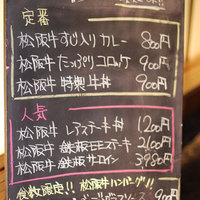 定番
松阪牛すじ入りカレー 800円
松阪牛たっぷりコロッケ 900円
松阪牛特製牛丼 900円
人気
松阪牛 レアステーキ丼 1200円
松阪牛 鉄板モモステーキ 2100円
松阪牛 鉄板サーロイン 3980円
食数限定!! 松阪牛ハンバーグ!!
900円